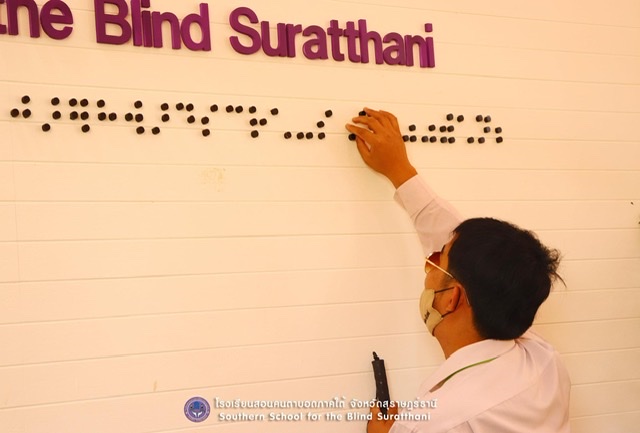 the Blind Suratthani
โรงเรียนสอนคนตาบอดภาคใต้ จังหวัดสุราษฎร์ธานี
Southern School for the Blind Suratthani